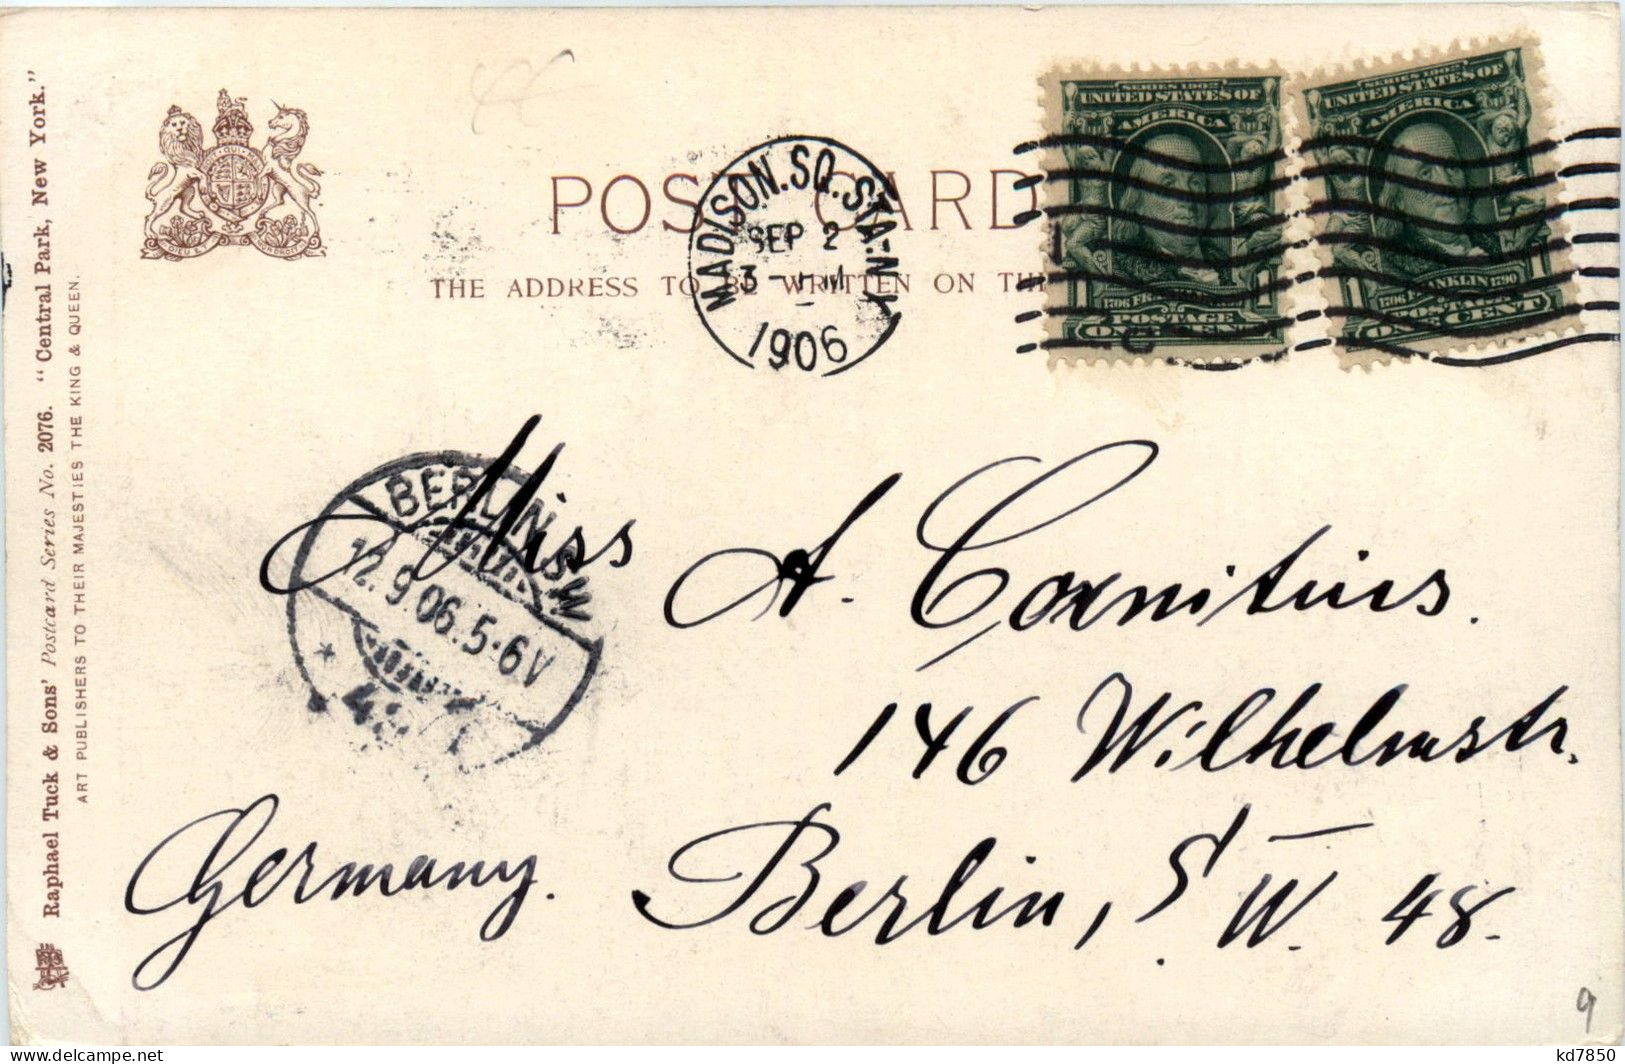 Raphael Tuck & Sons' Postcard Series No. 2076. "Central Park, New York."
ART PUBLISHERS TO THEIR MAJESTIES THE KING & QUEEN.
POST CARD
THE ADDRESS TO BE WRITTEN ON THIS
MADISON.SQ.STA.N.Y.
SEP 2
3 - PM
1906
SERIES 1902
UNITED STATES OF
AMERICA
1706 FRANKLIN 1790
1 POSTAGE 1
ONE CENT
SERIES 1902
UNITED STATES OF
AMERICA
1706 FRANKLIN 1790
1 POSTAGE 1
ONE CENT
BERLIN SW
12.9.06.5-6V
Miss A. Cornitius.
146 Wilhelmstr.
Berlin, S. W. 48.
Germany.
9
kd7850